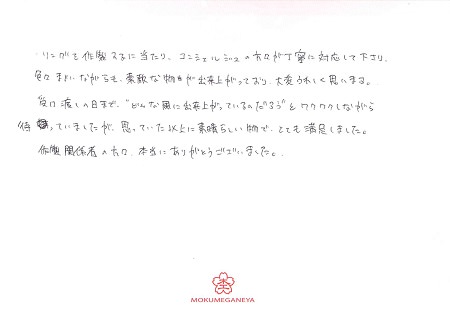 リングを作製するに当たり、コンシェルジュの方々が丁寧に対応して下さり、
色々まよいながらも、素敵な物が出来上がっており、大変うれしく思います。
受け渡しの日まで、"どんな風に出来上がっているのだろう"とワクワクしながら
待っていましたが、思っていた以上に素晴らしい物で、とても満足しました。
作製関係者の方々、本当にありがとうございました。
木
MOKUMEGANEYA